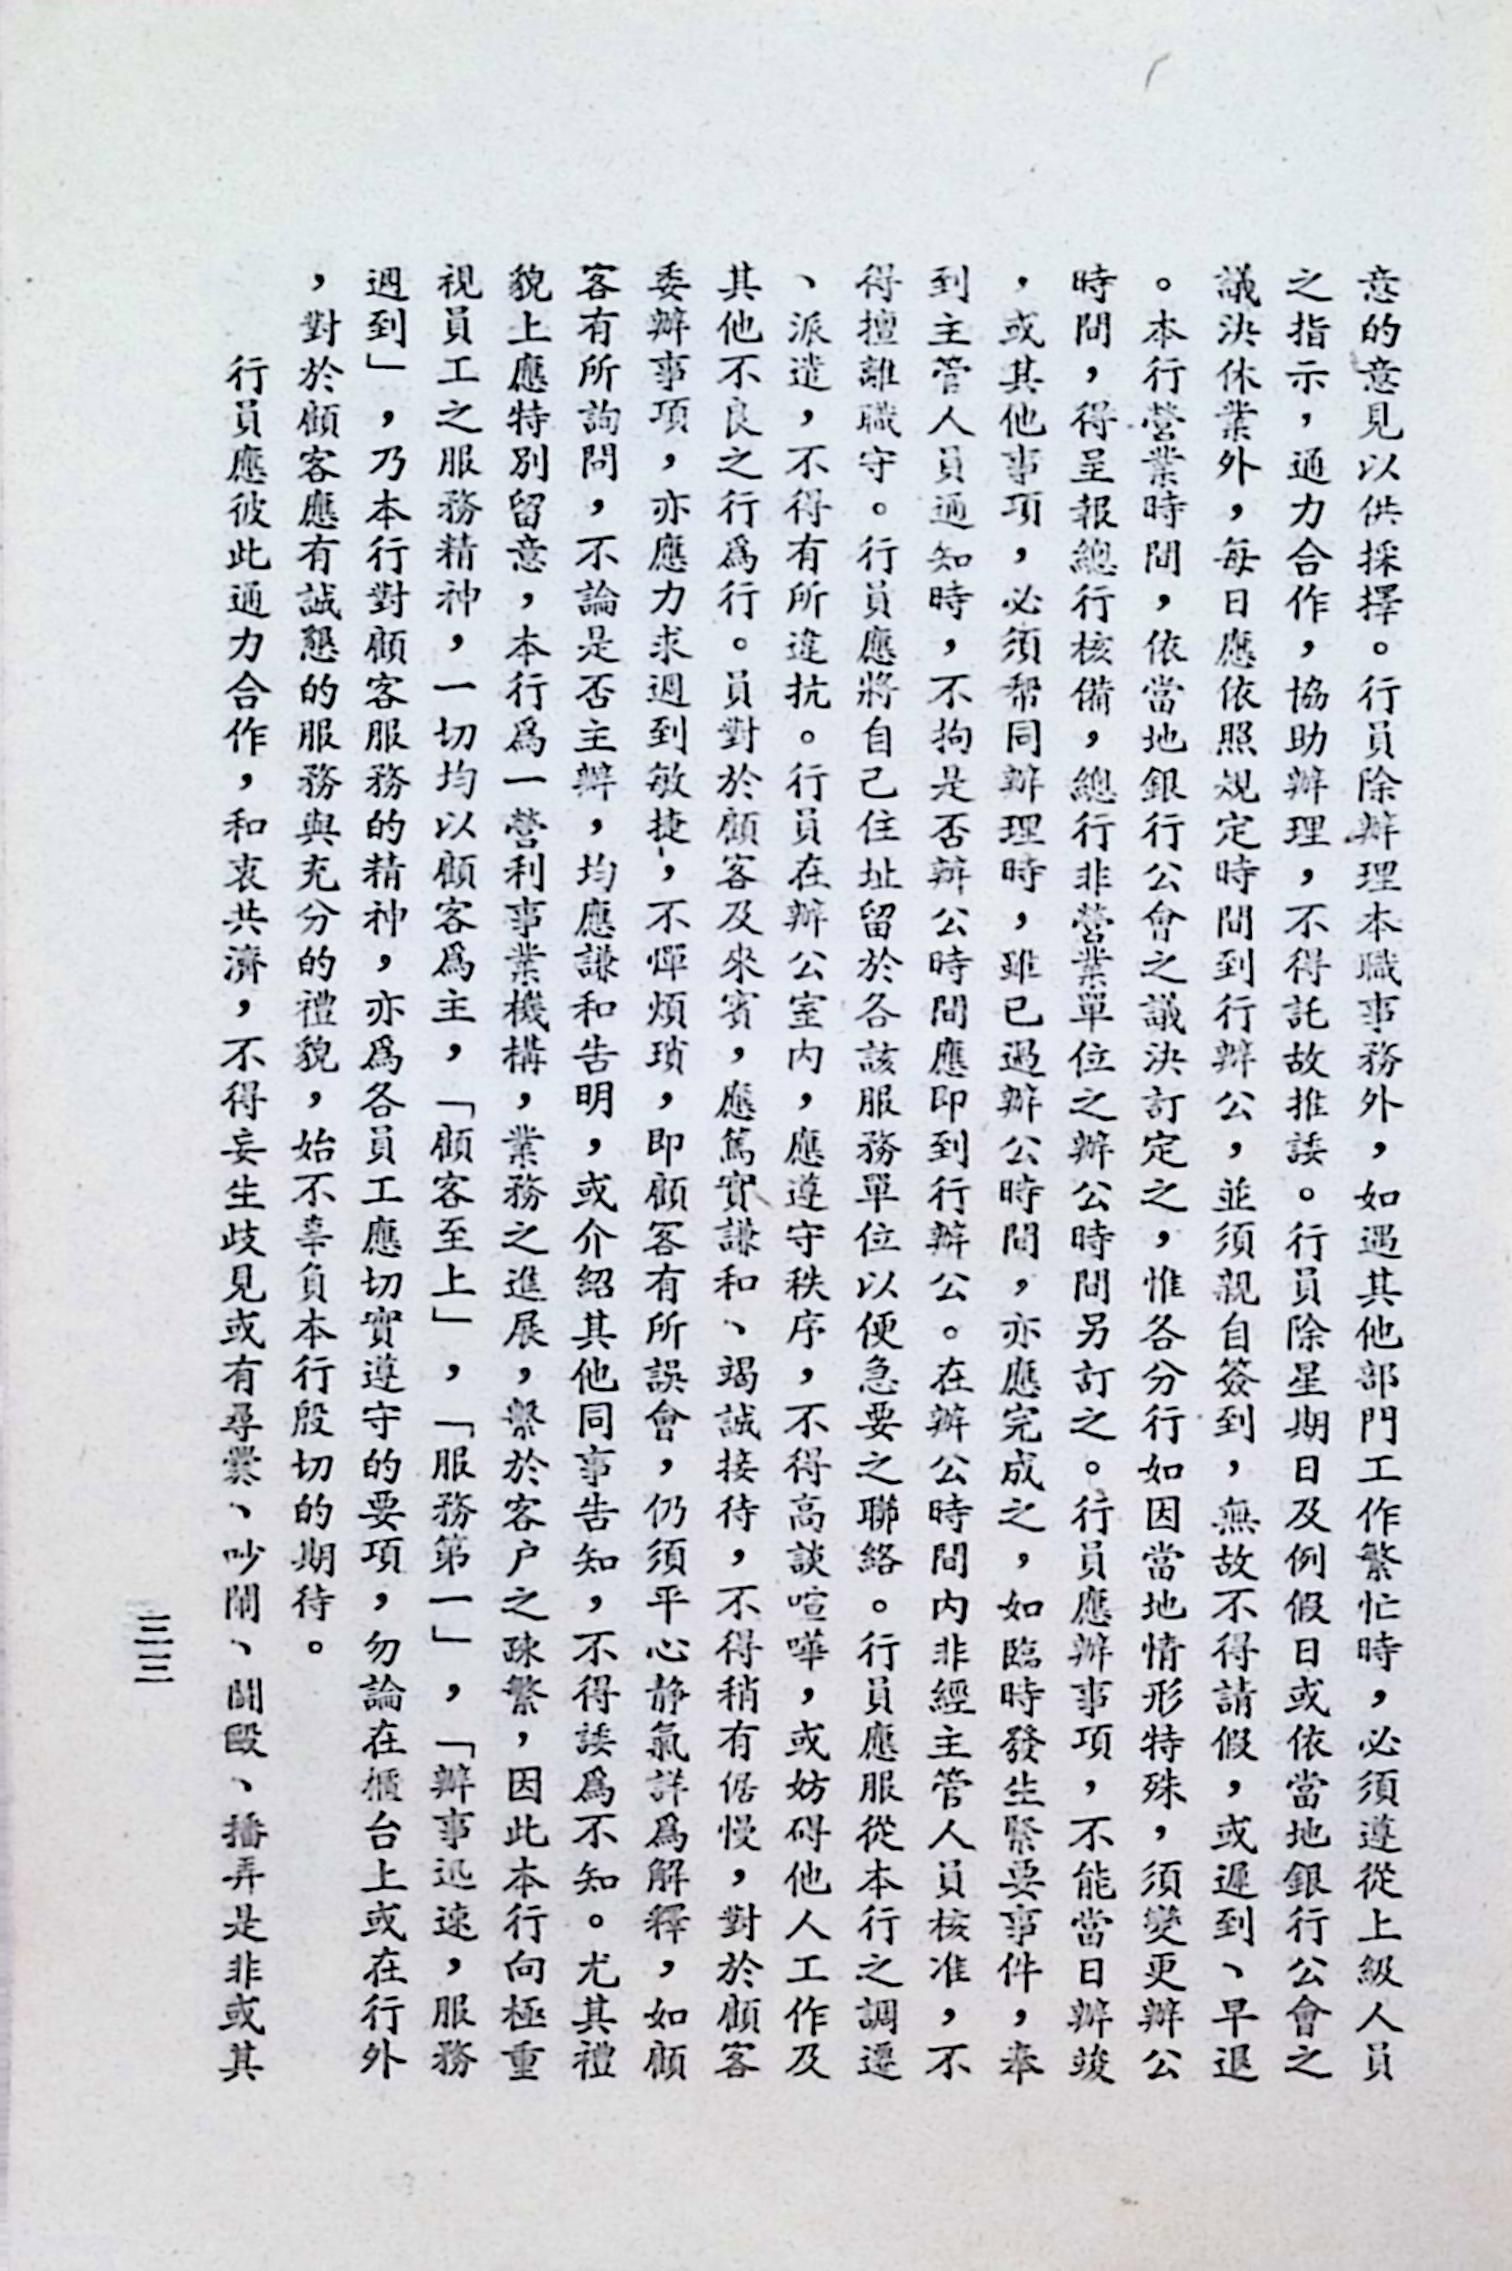 意的意見以供採擇。行員除辦理本職事務外，如遇其他部門工作繁忙時，必須遵從上級人員
之指示，通力合作，協助辦理，不得託故推諉。行員除星期日及例假日或依當地銀行公會之
議決休業外，每日應依照規定時間到行辦公，並須親自簽到，無故不得請假，或遲到、早退
。本行營業時間，依當地銀行公會之議決訂定之，惟各分行如因當地情形特殊，須變更辦公
時間，得呈報總行核備，總行非營業單位之辦公時間另訂之。行員應辦事項，不能當日辦竣
，或其他事項，必須幫同辦理時，雖已過辦公時間，亦應完成之，如臨時發生緊要事件，奉
到主管人員通知時，不拘是否辦公時間應即到行辦公。在辦公時間內非經主管人員核准，不
得擅離職守。行員應將自己住址留於各該服務單位以便急要之聯絡。行員應服從本行之調遷
、派遣，不得有所違抗。行員在辦公室內，應遵守秩序，不得高談喧嘩，或妨碍他人工作及
其他不良之行爲行。員對於顧客及來賓，應篤實謙和、竭誠接待，不得稍有倨慢，對於顧客
委辦事項，亦應力求週到敏捷，不憚煩瑣，即顧客有所誤會，仍須平心静氣詳爲解釋，如顧
客有所詢問，不論是否主辦，均應謙和告明，或介紹其他同事告知，不得諉爲不知。尤其禮
貌上應特別留意，本行爲一營利事業機構，業務之進展，繫於客户之疎繁，因此本行向極重
視員工之服務精神，一切均以顧客爲主，「顧客至上」，「服務第一」，「辦事迅速，服務
週到」，乃本行對顧客服務的精神，亦爲各員工應切實遵守的要項，勿論在櫃台上或在行外
，對於顧客應有誠懇的服務與充分的禮貌，始不辜負本行殷切的期待。
行員應彼此通力合作，和衷共濟，不得妄生歧見或有尋釁、吵鬧、鬪毆、播弄是非或其
三三